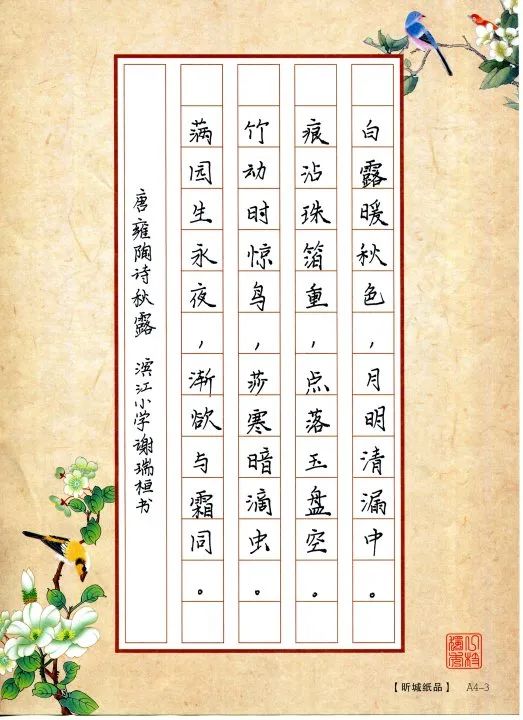 白露暖秋色,月明清漏中。
痕沾珠箔重,点落玉盘空。
竹动时惊鸟,莎寒暗滴虫。
满园生永夜,渐欲与霜同。
唐雍陶诗秋露 滨江小学谢瑞桓书
【昕城纸品】 A4-3